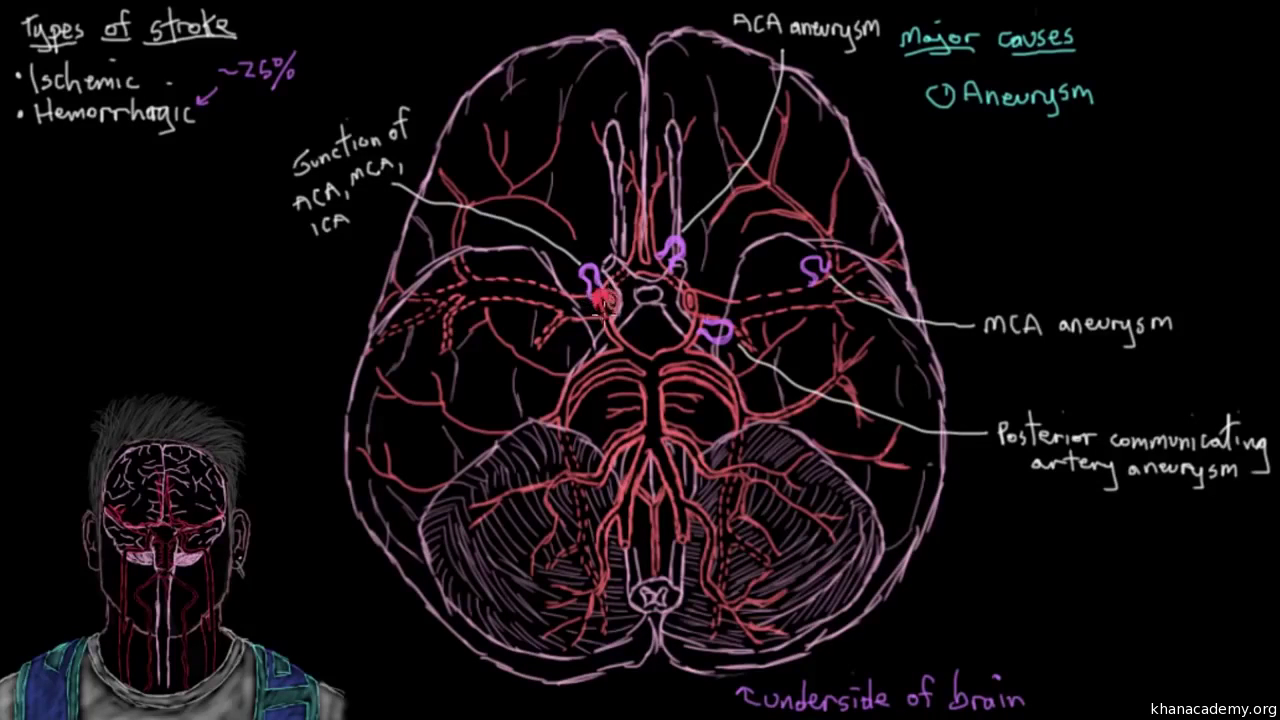 Types of stroke
• Ischemic
• Hemorrhagic
~25%
Junction of
ACA, MCA,
ICA
ACA aneurysm
Major causes
① Aneurysm
MCA aneurysm
Posterior communicating
artery aneurysm
underside of brain
khanacademy.org